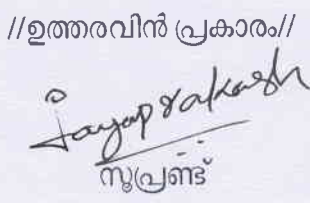 //ഉത്തരവിൻ പ്രകാരം//
Jayaprakash
സൂപ്രണ്ട്